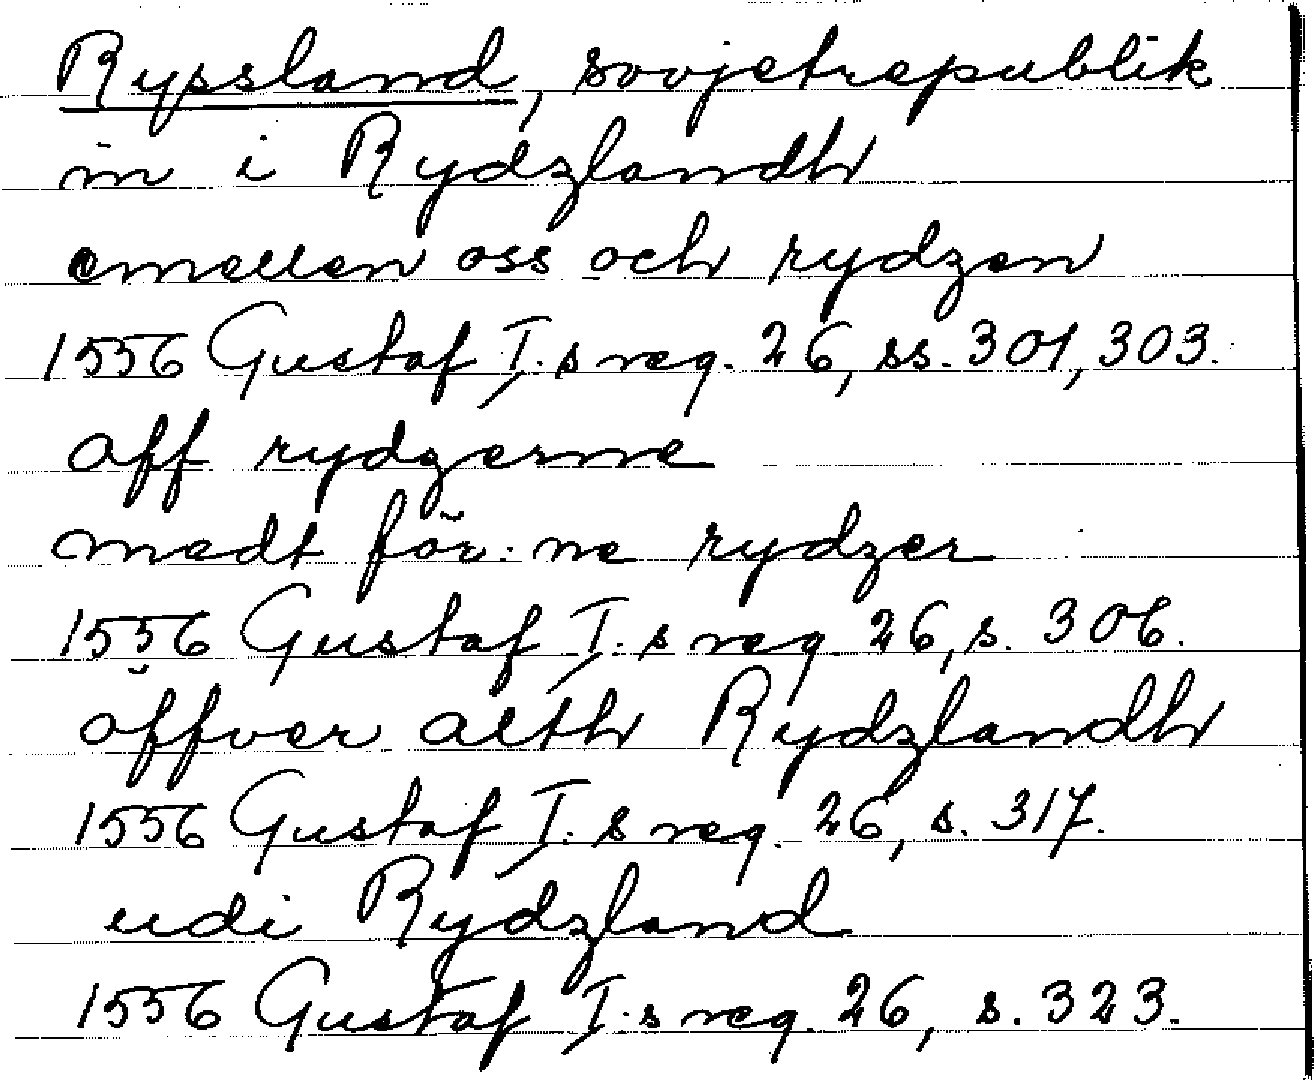 Ryssland, sovjetrepublik
in i Rydzlandh
emellen oss och rydzen
1556 Gustaf I:s reg. 26, ss. 301, 303.
aff rydzerne
medt för:ne rydzer
1556 Gustaf I:s reg. 26, s. 306.
öffver alth Rydzlandh
1556 Gustaf I:s reg. 26, s. 317.
udi Rydzland
1556 Gustaf I:s reg. 26, s. 323.